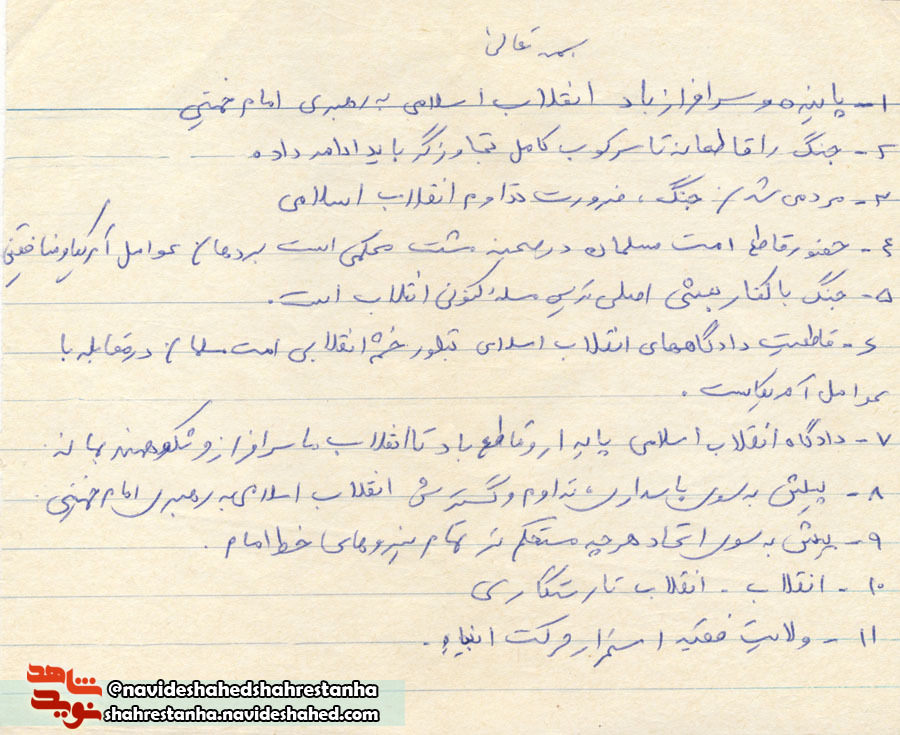 بسمه تعالی
۱- پاینده و سرافراز باد انقلاب اسلامی به رهبری امام خمینی
۲- جنگ را قاطعانه تا سرکوب کامل تجاوزگر باید ادامه داد
۳- مردمی شدن جنگ، ضرورت تداوم انقلاب اسلامی
۴- حضور قاطع امت مسلمان در صحنه مشت محکمی است بر دهان عوامل آمریکا و منافقین
۵- جنگ با کفار بعثی اصلی ترین مسئله کنونی انقلاب است.
۶- قاطعیت دادگاههای انقلاب اسلامی تبلور خشم انقلابی امت مسلمان در مقابله با
عوامل آمریکاست.
۷- دادگاه انقلاب اسلامی پایدار و قاطع باد تا انقلاب ما سرافراز و شکوهمند بماند
۸- پیش به سوی پاسداری، تداوم و گسترش انقلاب اسلامی به رهبری امام خمینی.
۹- پیش به سوی اتحاد هر چه مستحکم تر تمام نیروهای خط امام.
۱۰- انقلاب - انقلاب تا رستگاری
۱۱- ولایت فقیه استمرار حرکت انبیاء.
شاهد
نوید
@navideshahedshahrestanha
shahrestanha.navideshahed.com